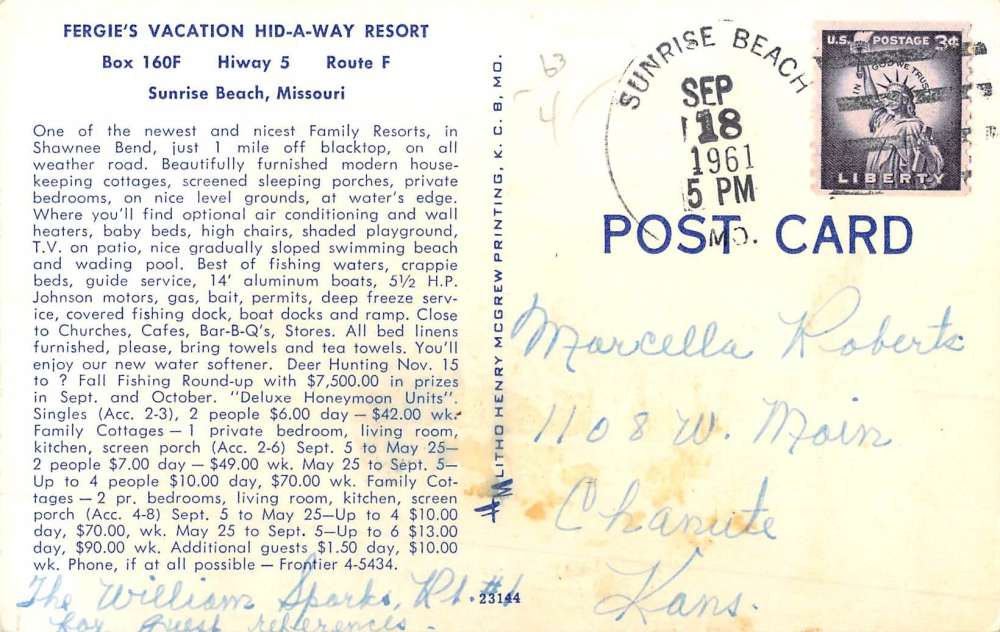 FERGIE'S VACATION HID-A-WAY RESORT
Box 160F Hiway 5 Route F
Sunrise Beach, Missouri
One of the newest and nicest Family Resorts, in
Shawnee Bend, just 1 mile off blacktop, on all
weather road. Beautifully furnished modern house-
keeping cottages, screened sleeping porches, private
bedrooms, on nice level grounds, at water's edge.
Where you'll find optional air conditioning and wall
heaters, baby beds, high chairs, shaded playground,
T.V. on patio, nice gradually sloped swimming beach
and wading pool. Best of fishing waters, crappie
beds, guide service, 14' aluminum boats, 5½ H.P.
Johnson motors, gas, bait, permits, deep freeze serv-
ice, covered fishing dock, boat docks and ramp. Close
to Churches, Cafes, Bar-B-Q's, Stores. All bed linens
furnished, please, bring towels and tea towels. You'll
enjoy our new water softener. Deer Hunting Nov. 15
to ? Fall Fishing Round-up with $7,500.00 in prizes
in Sept. and October. "Deluxe Honeymoon Units".
Singles (Acc. 2-3), 2 people $6.00 day — $42.00 wk.
Family Cottages — 1 private bedroom, living room,
kitchen, screen porch (Acc. 2-6) Sept. 5 to May 25—
2 people $7.00 day — $49.00 wk. May 25 to Sept. 5—
Up to 4 people $10.00 day, $70.00 wk. Family Cot-
tages — 2 pr. bedrooms, living room, kitchen, screen
porch (Acc. 4-8) Sept. 5 to May 25—Up to 4 $10.00
day, $70.00, wk. May 25 to Sept. 5—Up to 6 $13.00
day, $90.00 wk. Additional guests $1.50 day, $10.00
wk. Phone, if at all possible — Frontier 4-5434.
The William Sparks, Rt. #1
guest references.
23144
LITHO HENRY MCGREW PRINTING, K. C. 8, MO.
63
4
SUNRISE BEACH
SEP
18
1961
5 PM
MO.
U.S. POSTAGE 3¢
IN GOD WE TRUST
LIBERTY
POST CARD
Marcella Roberts
1108 W. Main
Chanute
Kans.